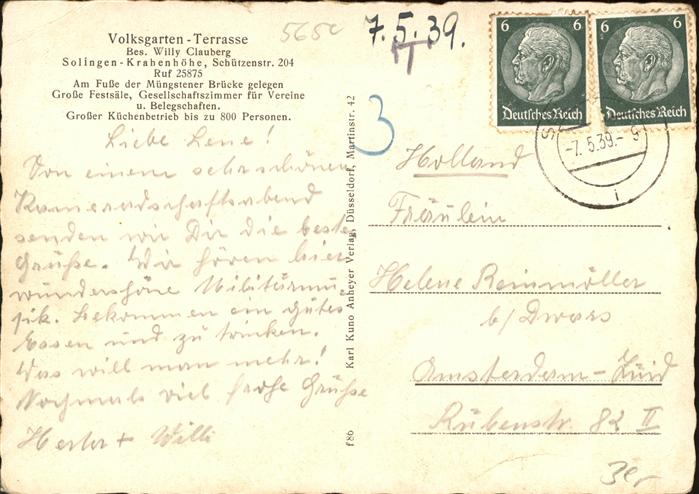 Volksgarten-Terrasse
Bes. Willy Clauberg
Solingen-Krahenhöhe, Schützenstr. 204
Ruf 25875
Am Fuße der Müngstener Brücke gelegen
Große Festsäle, Gesellschaftszimmer für Vereine
u. Belegschaften.
Großer Küchenbetrieb bis zu 800 Personen.
565c
7.5.39.
6
6
Deutsches Reich
Deutsches Reich
-7.5.39.- 9
i
3
Liebe Lene!
Von einem sehr schönen
Kameradschaftsabend
senden wir Dir die beste
Grüße. Wir hören hier
wunderschöne Militärmu
sik. Bekommen ein gutes
Essen und zu trinken.
Was will man mehr!
Nochmals viel frohe Grüße
+ Willi
Karl Kuno Anheyer Verlag, Düsseldorf, Martinstr. 42
f 86
Holland
Fräulein
Helene Reinmöller
b/ Dwars
Amsterdam-Zuid
Rübenstr. 82 II